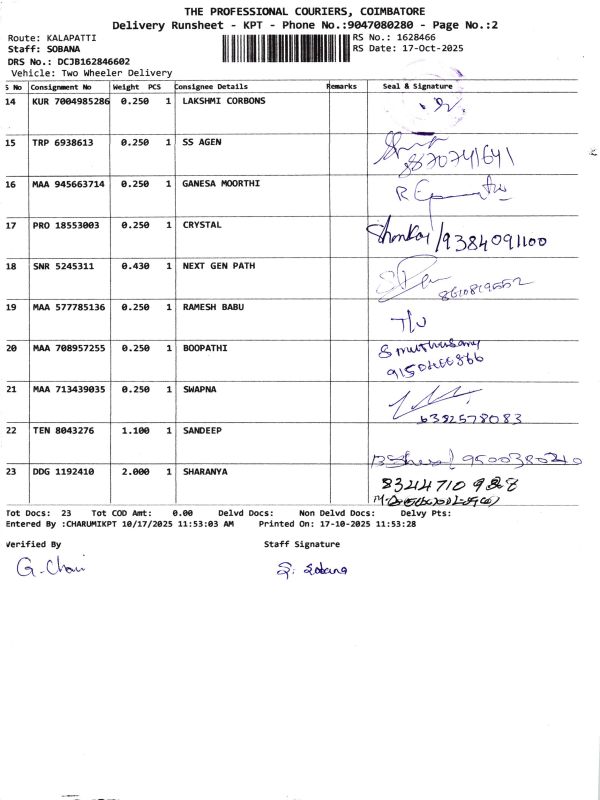 THE PROFESSIONAL COURIERS, COIMBATORE
Delivery Runsheet - KPT - Phone No.:9047080280 - Page No.:2
Route: KALAPATTI
RS No.: 1628466
Staff: SOBANA
RS Date: 17-Oct-2025
DRS No.: DCJB162846602
Vehicle: Two Wheeler Delivery
S No Consignment No Weight PCS Consignee Details Remarks Seal & Signature
14 KUR 7004985286 0.250 1 LAKSHMI CORBONS
15 TRP 6938613 0.250 1 SS AGEN
8870741641
16 MAA 945663714 0.250 1 GANESA MOORTHI
17 PRO 18553003 0.250 1 CRYSTAL
Shankar/9384091100
18 SNR 5245311 0.430 1 NEXT GEN PATH
8610819552
19 MAA 577785136 0.250 1 RAMESH BABU
T/W
20 MAA 708957255 0.250 1 BOOPATHI
S muthusamy
21 MAA 713439035 0.250 1 SWAPNA
6382578083
22 TEN 8043276 1.100 1 SANDEEP
9500380240
23 DDG 1192410 2.000 1 SHARANYA
8344710988
Tot Docs: 23 Tot COD Amt: 0.00 Delvd Docs: Non Delvd Docs: Delvy Pts:
Entered By :CHARUMIKPT 10/17/2025 11:53:03 AM Printed On: 17-10-2025 11:53:28
Verified By Staff Signature
S. Sobana